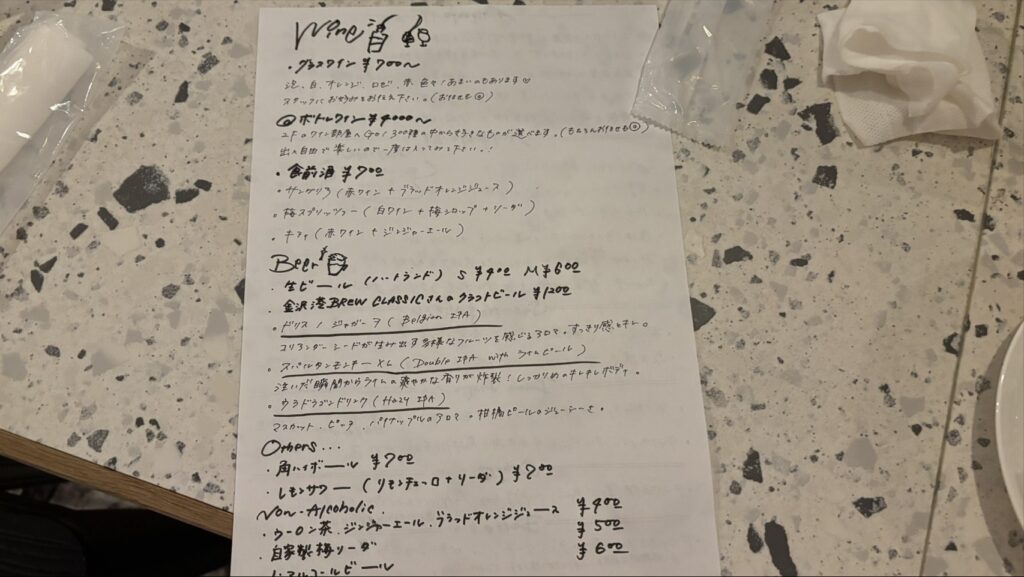 Wine
・グラスワイン ¥700〜
泡、白、オレンジ、ロゼ、赤 色々!あまいのもあります♡
スタッフにお好みをお伝え下さい。(おまかせも◎)
◎ボトルワイン ¥4000〜
2Fのワイン部屋へGo! 300種の中から好きなものが選べます。(もちろんおまかせも◎)
出入自由で楽しいので一度は入ってみて下さい。!
・食前酒 ¥700
・サングリア(赤ワイン+ブラッドオレンジジュース)
・梅スプリッツァー(白ワイン+梅シロップ+ソーダ)
・キティ(赤ワイン+ジンジャーエール)
Beer
・生ビール(ハートランド) S ¥400 M ¥600
金沢港BREW CLASSICさんのクラフトビール ¥1200
・ドリス / ジャガーア(Belgian IPA)
コリアンダーシードが生み出す多様なフルーツを感じるアロマ。すっきり感とキレ。
・スパルタンモンキーXL(Double IPA with ライムピール)
注いだ瞬間からライムの爽やかな香りが炸裂!しっかりめのキレキレボディ。
・ウラドラゴンドリンク(Hazy IPA)
マスカット、ピーチ、パイナップルのアロマ。柑橘ピールのジューシーさ。
Others...
・角ハイボール ¥700
・レモンサワー(リモンチェーロ+ソーダ) ¥700
Non-Alcoholic
・ウーロン茶、ジンジャーエール、ブラッドオレンジジュース ¥400
・自家製梅ソーダ ¥500
ノンアルコールビール ¥600